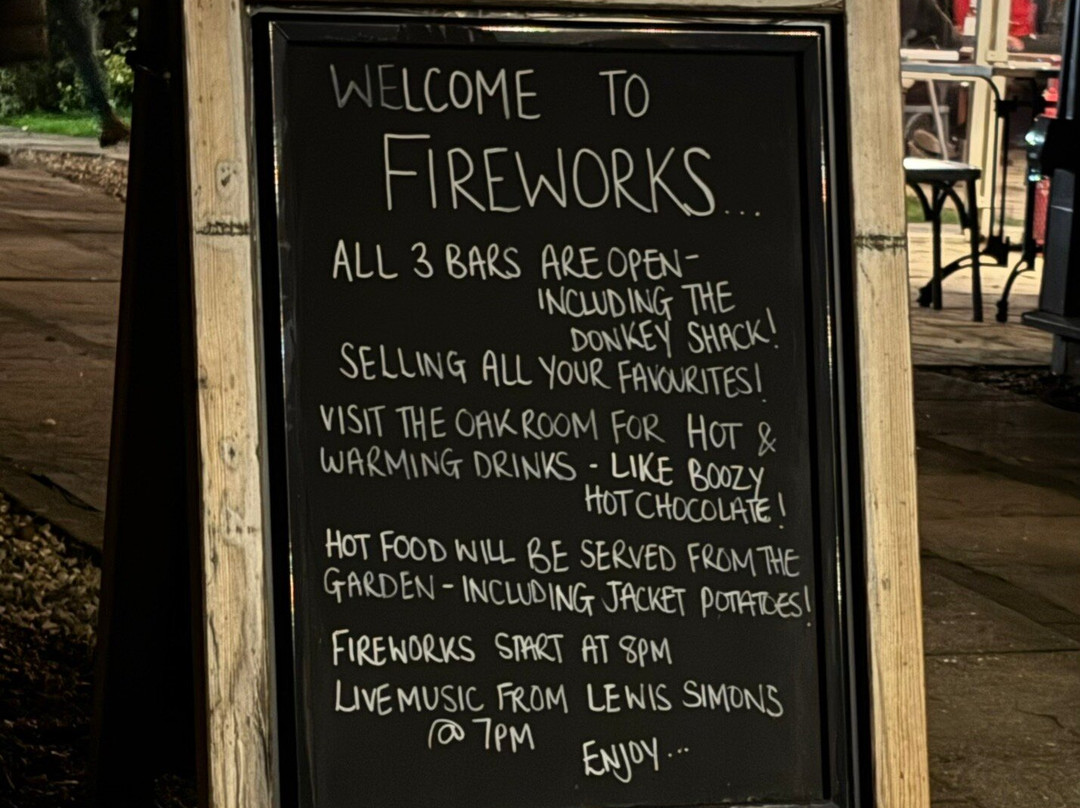 WELCOME TO
FIREWORKS...
ALL 3 BARS ARE OPEN-
INCLUDING THE
DONKEY SHACK!
SELLING ALL YOUR FAVOURITES!
VISIT THE OAK ROOM FOR HOT &
WARMING DRINKS - LIKE BOOZY
HOT CHOCOLATE!
HOT FOOD WILL BE SERVED FROM THE
GARDEN - INCLUDING JACKET POTATOES!
FIREWORKS START AT 8PM
LIVE MUSIC FROM LEWIS SIMONS
@ 7PM
ENJOY...